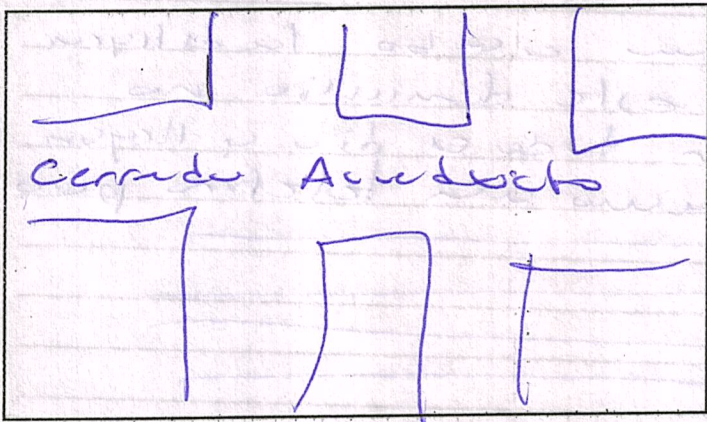 Cerrada Acueducto